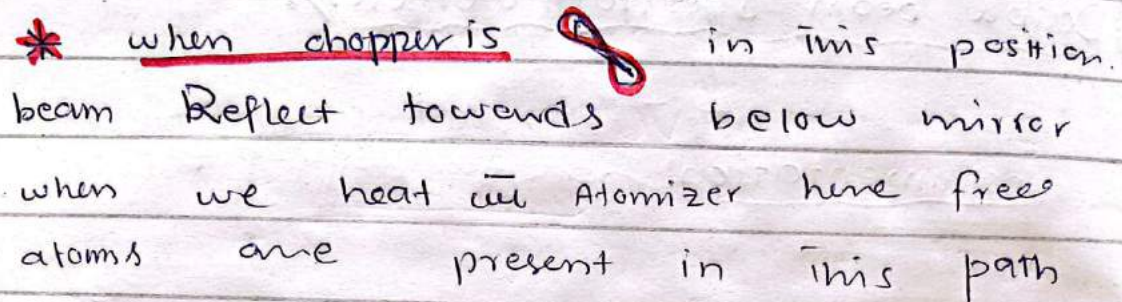 * when chopper is in this position.
beam Reflect towards below mirror
when we heat the Atomizer here free
atoms are present in this path